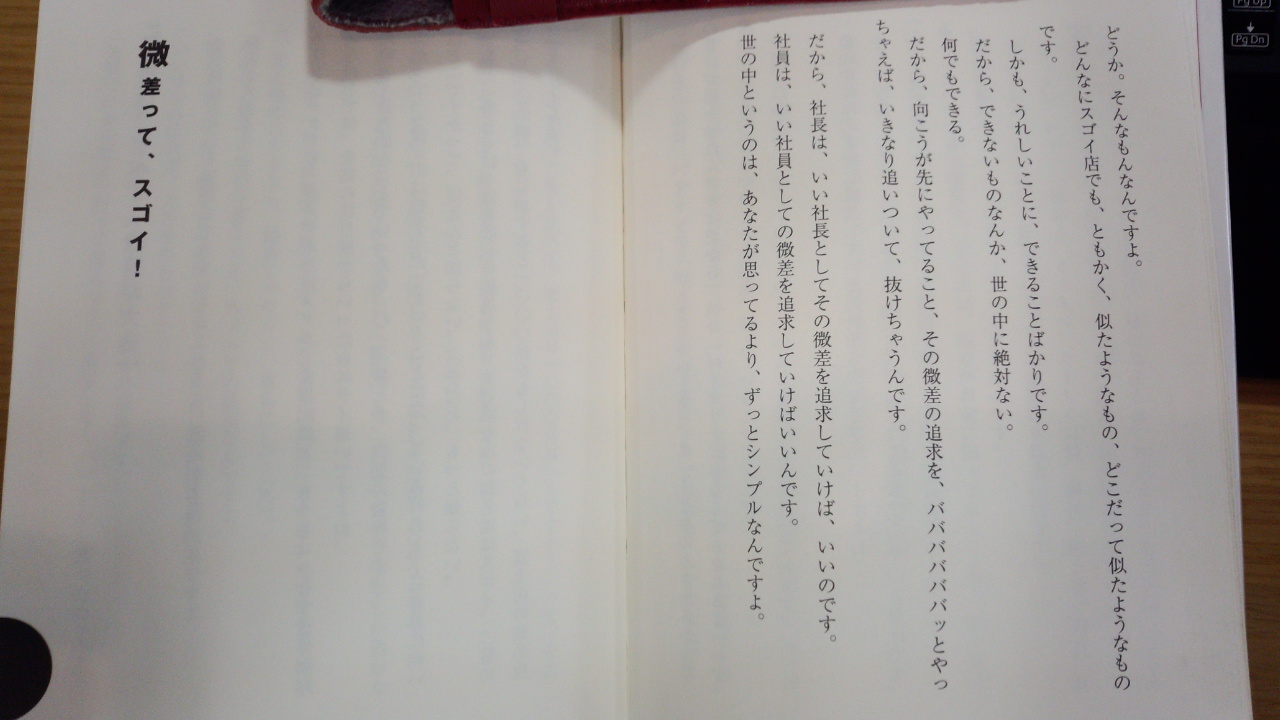 どうか。そんなもんなんですよ。
どんなにスゴイ店でも、ともかく、似たようなもの、どこだって似たようなもの
です。
しかも、うれしいことに、できることばかりです。
だから、できないものなんか、世の中に絶対ない。
何でもできる。
だから、向こうが先にやってること、その微差の追求を、バババババババッとやっ
ちゃえば、いきなり追いついて、抜けちゃうんです。
だから、社長は、いい社長としてその微差を追求していけば、いいのです。
社員は、いい社員としての微差を追求していけばいいんです。
世の中というのは、あなたが思ってるより、ずっとシンプルなんですよ。
微差って、スゴイ！
Pg Up
Pg Dn